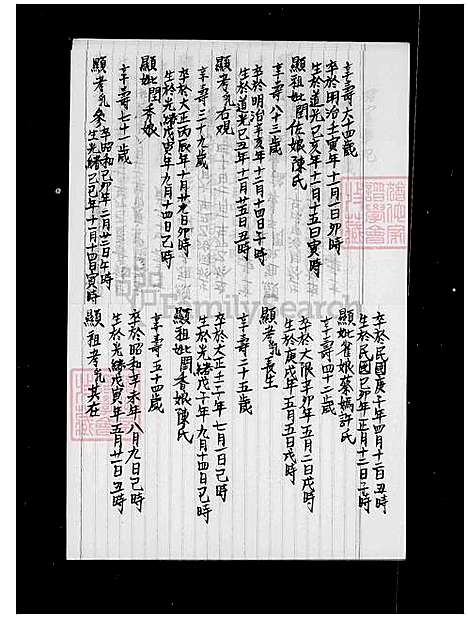 享壽六十四歲
卒於明治壬寅年十一月一日卯時
生於道光己亥年十一月十五日寅時
顯祖妣閏位娘陳氏
享壽八十三歲
卒於明治辛亥年十二月十四日午時
生於道光己丑年十一月廿五日丑時
顯考乳右观
享壽三十九歲
卒於大正丙辰年十一月廿日卯時
生於光緒戊寅年九月十四日己時
顯妣閏秀娘
享壽七十一歲
卒昭和己卯年二月廿二日午時
顯考乳參
生光緒己巳年十一月十四日寅時
卒於民國庚子年四月十二日丑時
生於民國己卯年正月十二日子時
顯妣雀娘蔡媽許氏
享壽四十二歲
卒於大限辛卯年五月二日戌時
生於庚戌年五月五日戌時
顯考乳長生
享壽二十五歲
卒於大正十二年七月一日己時
生於光緒戊子年九月十四日己時
顯祖妣閏香娘陳氏
享壽五十四歲
卒於昭和辛未年八月九日己時
生於光緒戊寅年五月廿一日丑時
顯祖考乳其在
FamilySearch